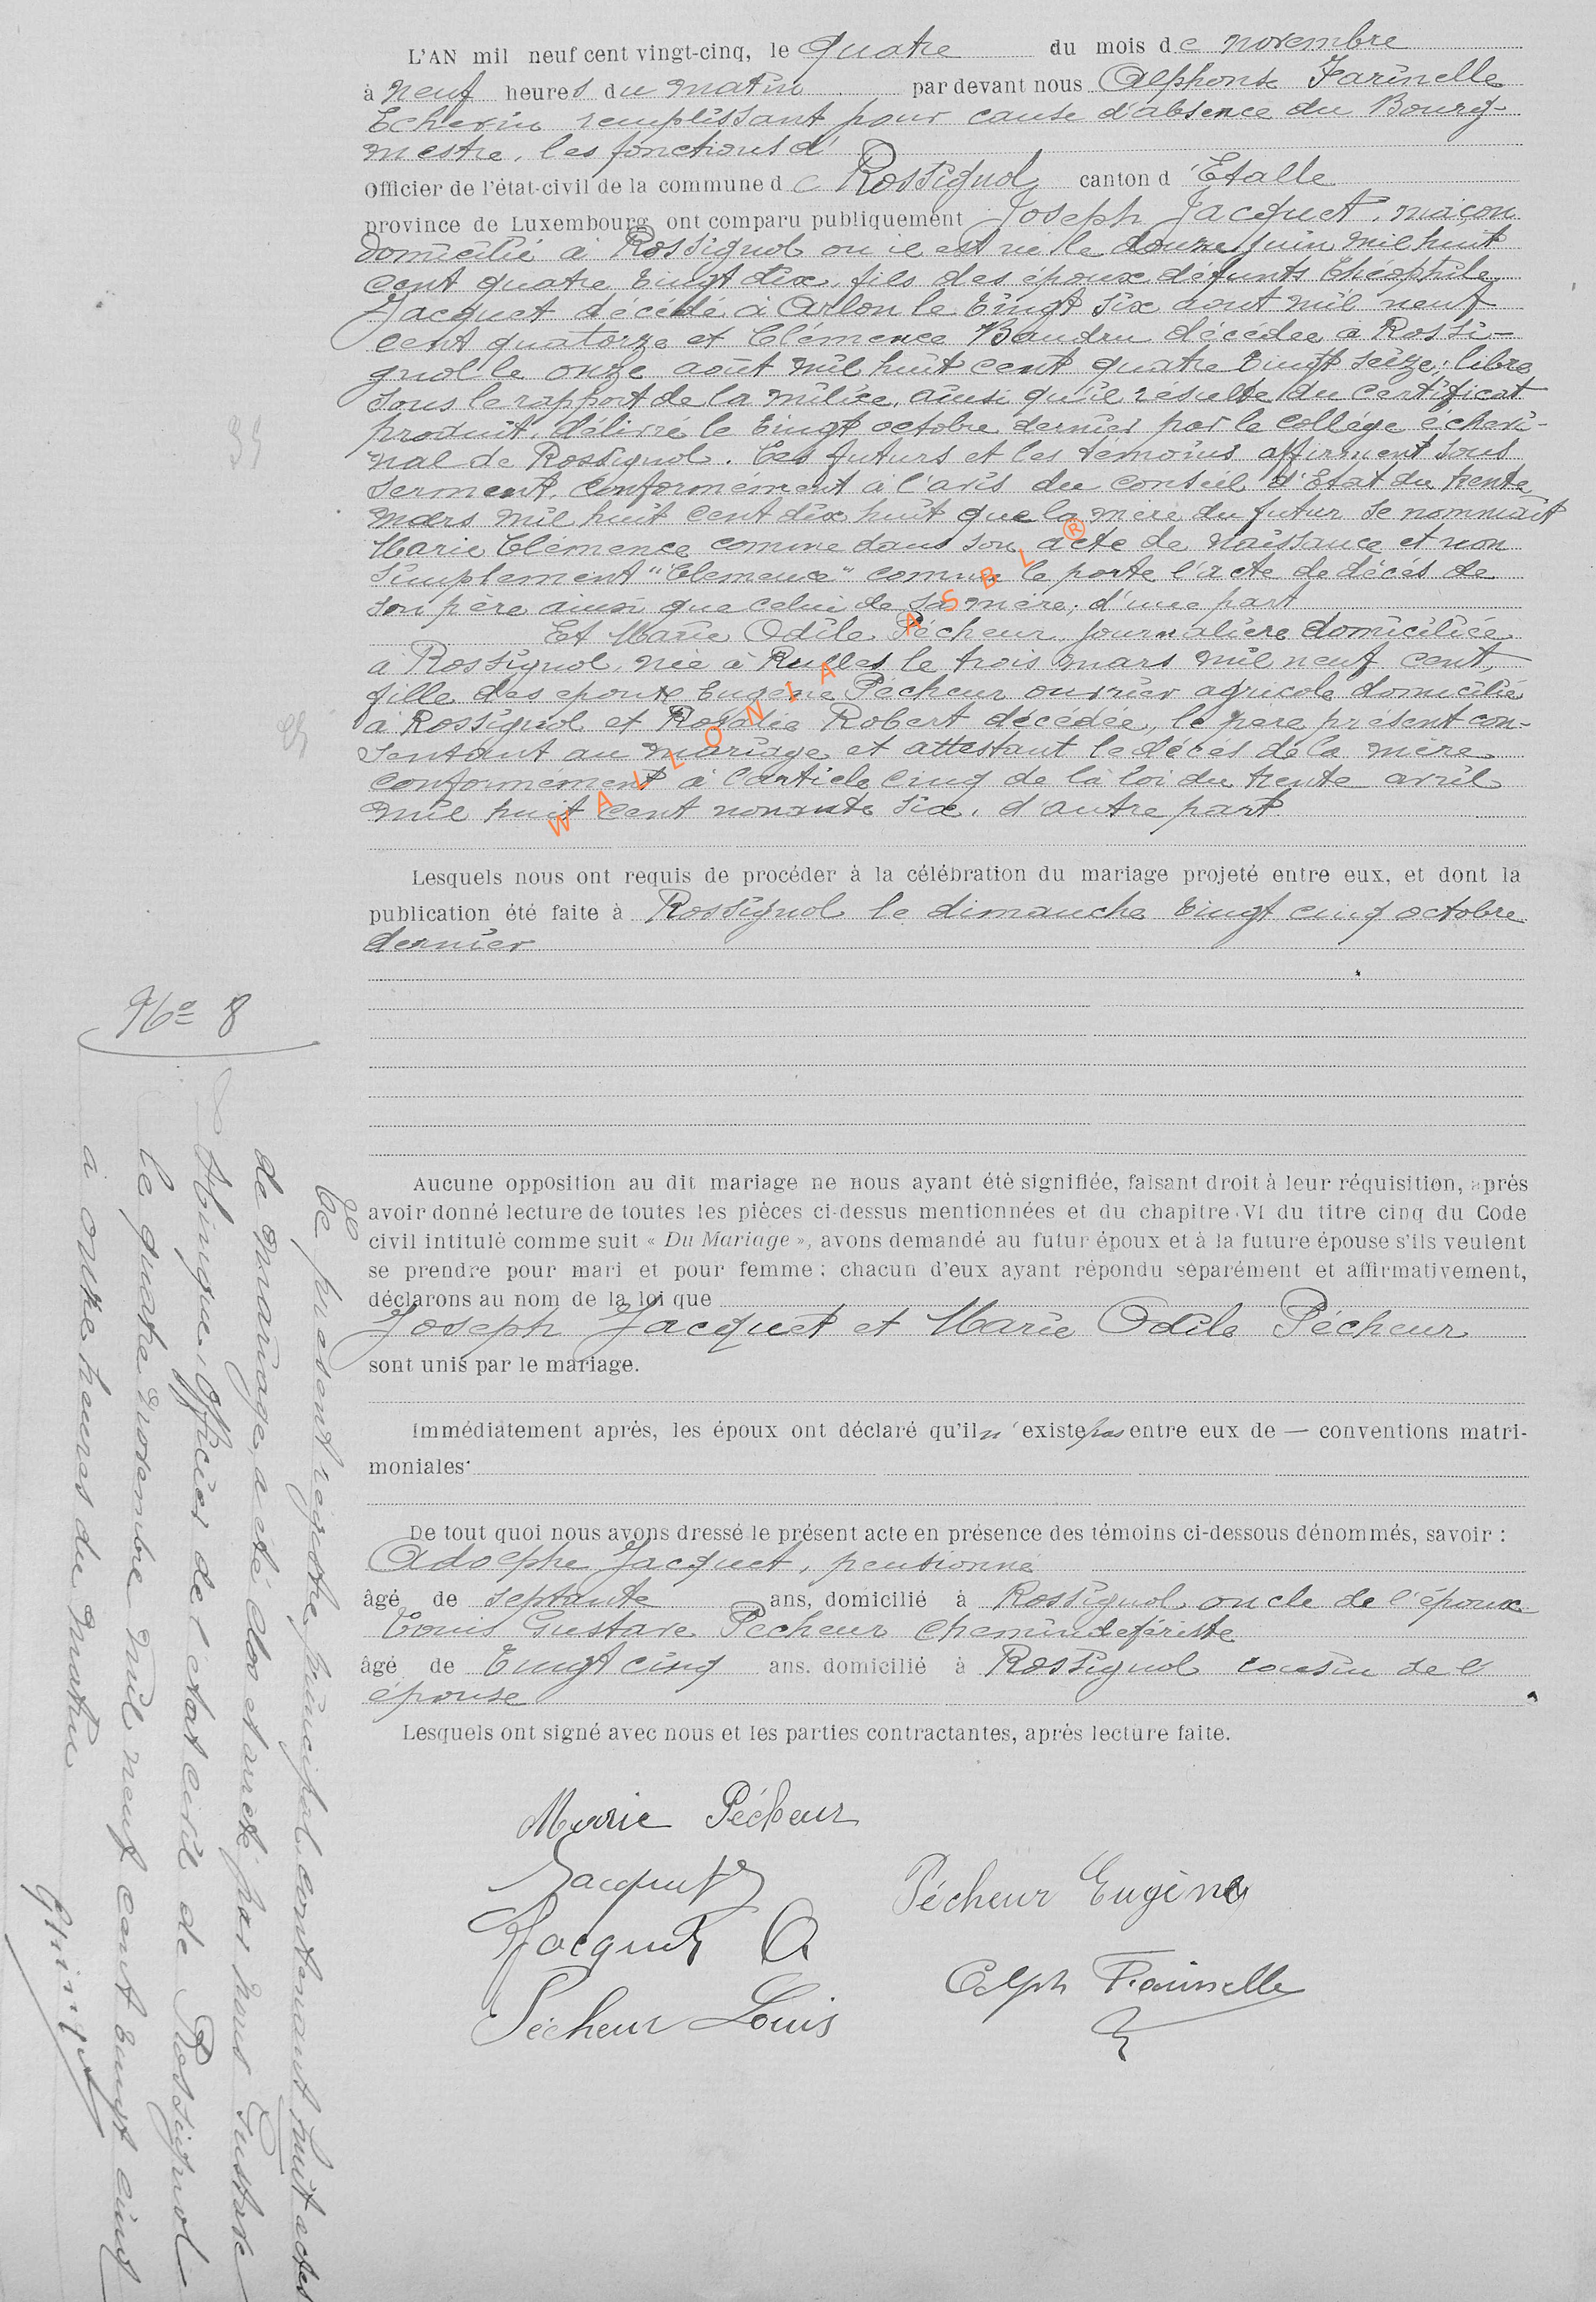 L'AN mil neuf cent vingt-cinq, le quatre du mois de novembre
à neuf heures du matin par devant nous Alphonse Farinelle
Echevin remplissant pour cause d'absence du Bourg-
mestre, les fonctions d'
Officier de l'état-civil de la commune de Rossignol canton d'Etalle
province de Luxembourg ont comparu publiquement Joseph Jacquet, maçon
domicilié à Rossignol où il est né le douze juin mil huit
cent quatre vingt dix, fils des époux défunts Théophile
Jacquet décédé à Arlon le vingt six aout mil neuf
cent quatorze et Clémence Baudru décédée à Rossi-
gnol le onze août mil huit cent quatre vingt seize; libre
sous le rapport de la milice, ainsi qu'il résulte du certificat
produit, délivré le vingt octobre dernier par le collège échevi-
nal de Rossignol. Les futurs et les témoins affirment sous
serment, conformément à l'avis du conseil d'Etat du trente
mars mil huit cent dix huit que la mère du futur se nommait
Marie Clémence comme dans son acte de naissance et non
simplement "Clemence" comme le porte l'acte de décès de
son père ainsi que celui de sa mère; d'une part
Et Marie Odile Pécheur journalière domiciliée
à Rossignol, née à Rulles le trois mars mil neuf cent,
fille des epoux Eugène Pécheur ouvrier agricole domicilié
à Rossignol et Rosalie Robert décédée, le père présent con-
sentant au mariage et attestant le décès de la mère
conformement à l'article cinq de la loi du trente avril
mil huit cent nonante six, d'autre part.
WALLONIA ASBL ®
Lesquels nous ont requis de procéder à la célébration du mariage projeté entre eux, et dont la
publication été faite à Rossignol le dimanche vingt cinq octobre
dernier
No 8
Aucune opposition au dit mariage ne nous ayant été signifiée, faisant droit à leur réquisition, après
avoir donné lecture de toutes les pièces ci-dessus mentionnées et du chapitre VI du titre cinq du Code
civil intitulé comme suit « Du Mariage », avons demandé au futur époux et à la future épouse s'ils veulent
se prendre pour mari et pour femme; chacun d'eux ayant répondu séparément et affirmativement,
déclarons au nom de la loi que
Joseph Jacquet et Marie Odile Pécheur
sont unis par le mariage.
Immédiatement après, les époux ont déclaré qu'il n'existe pas entre eux de — conventions matri-
moniales
De tout quoi nous avons dressé le présent acte en présence des témoins ci-dessous dénommés, savoir :
Adolphe Jacquet, pensionné
âgé de septante ans, domicilié à Rossignol oncle de l'époux
Louis Gustave Pécheur chemindefériste
âgé de vingt cinq ans. domicilié à Rossignol cousin de l'
épouse
Lesquels ont signé avec nous et les parties contractantes, après lecture faite.
Marie Pécheur
Jacquet
Pécheur Eugène
Jacquet A
Alph Farinelle
Pécheur Louis
Ce présent registre principal contenant huit actes
de mariage, a été clos et arrêté par nous Gustave
Officier de l'état civil de Rossignol
le quatre novembre mil neuf cent vingt cinq
à onze heures du matin